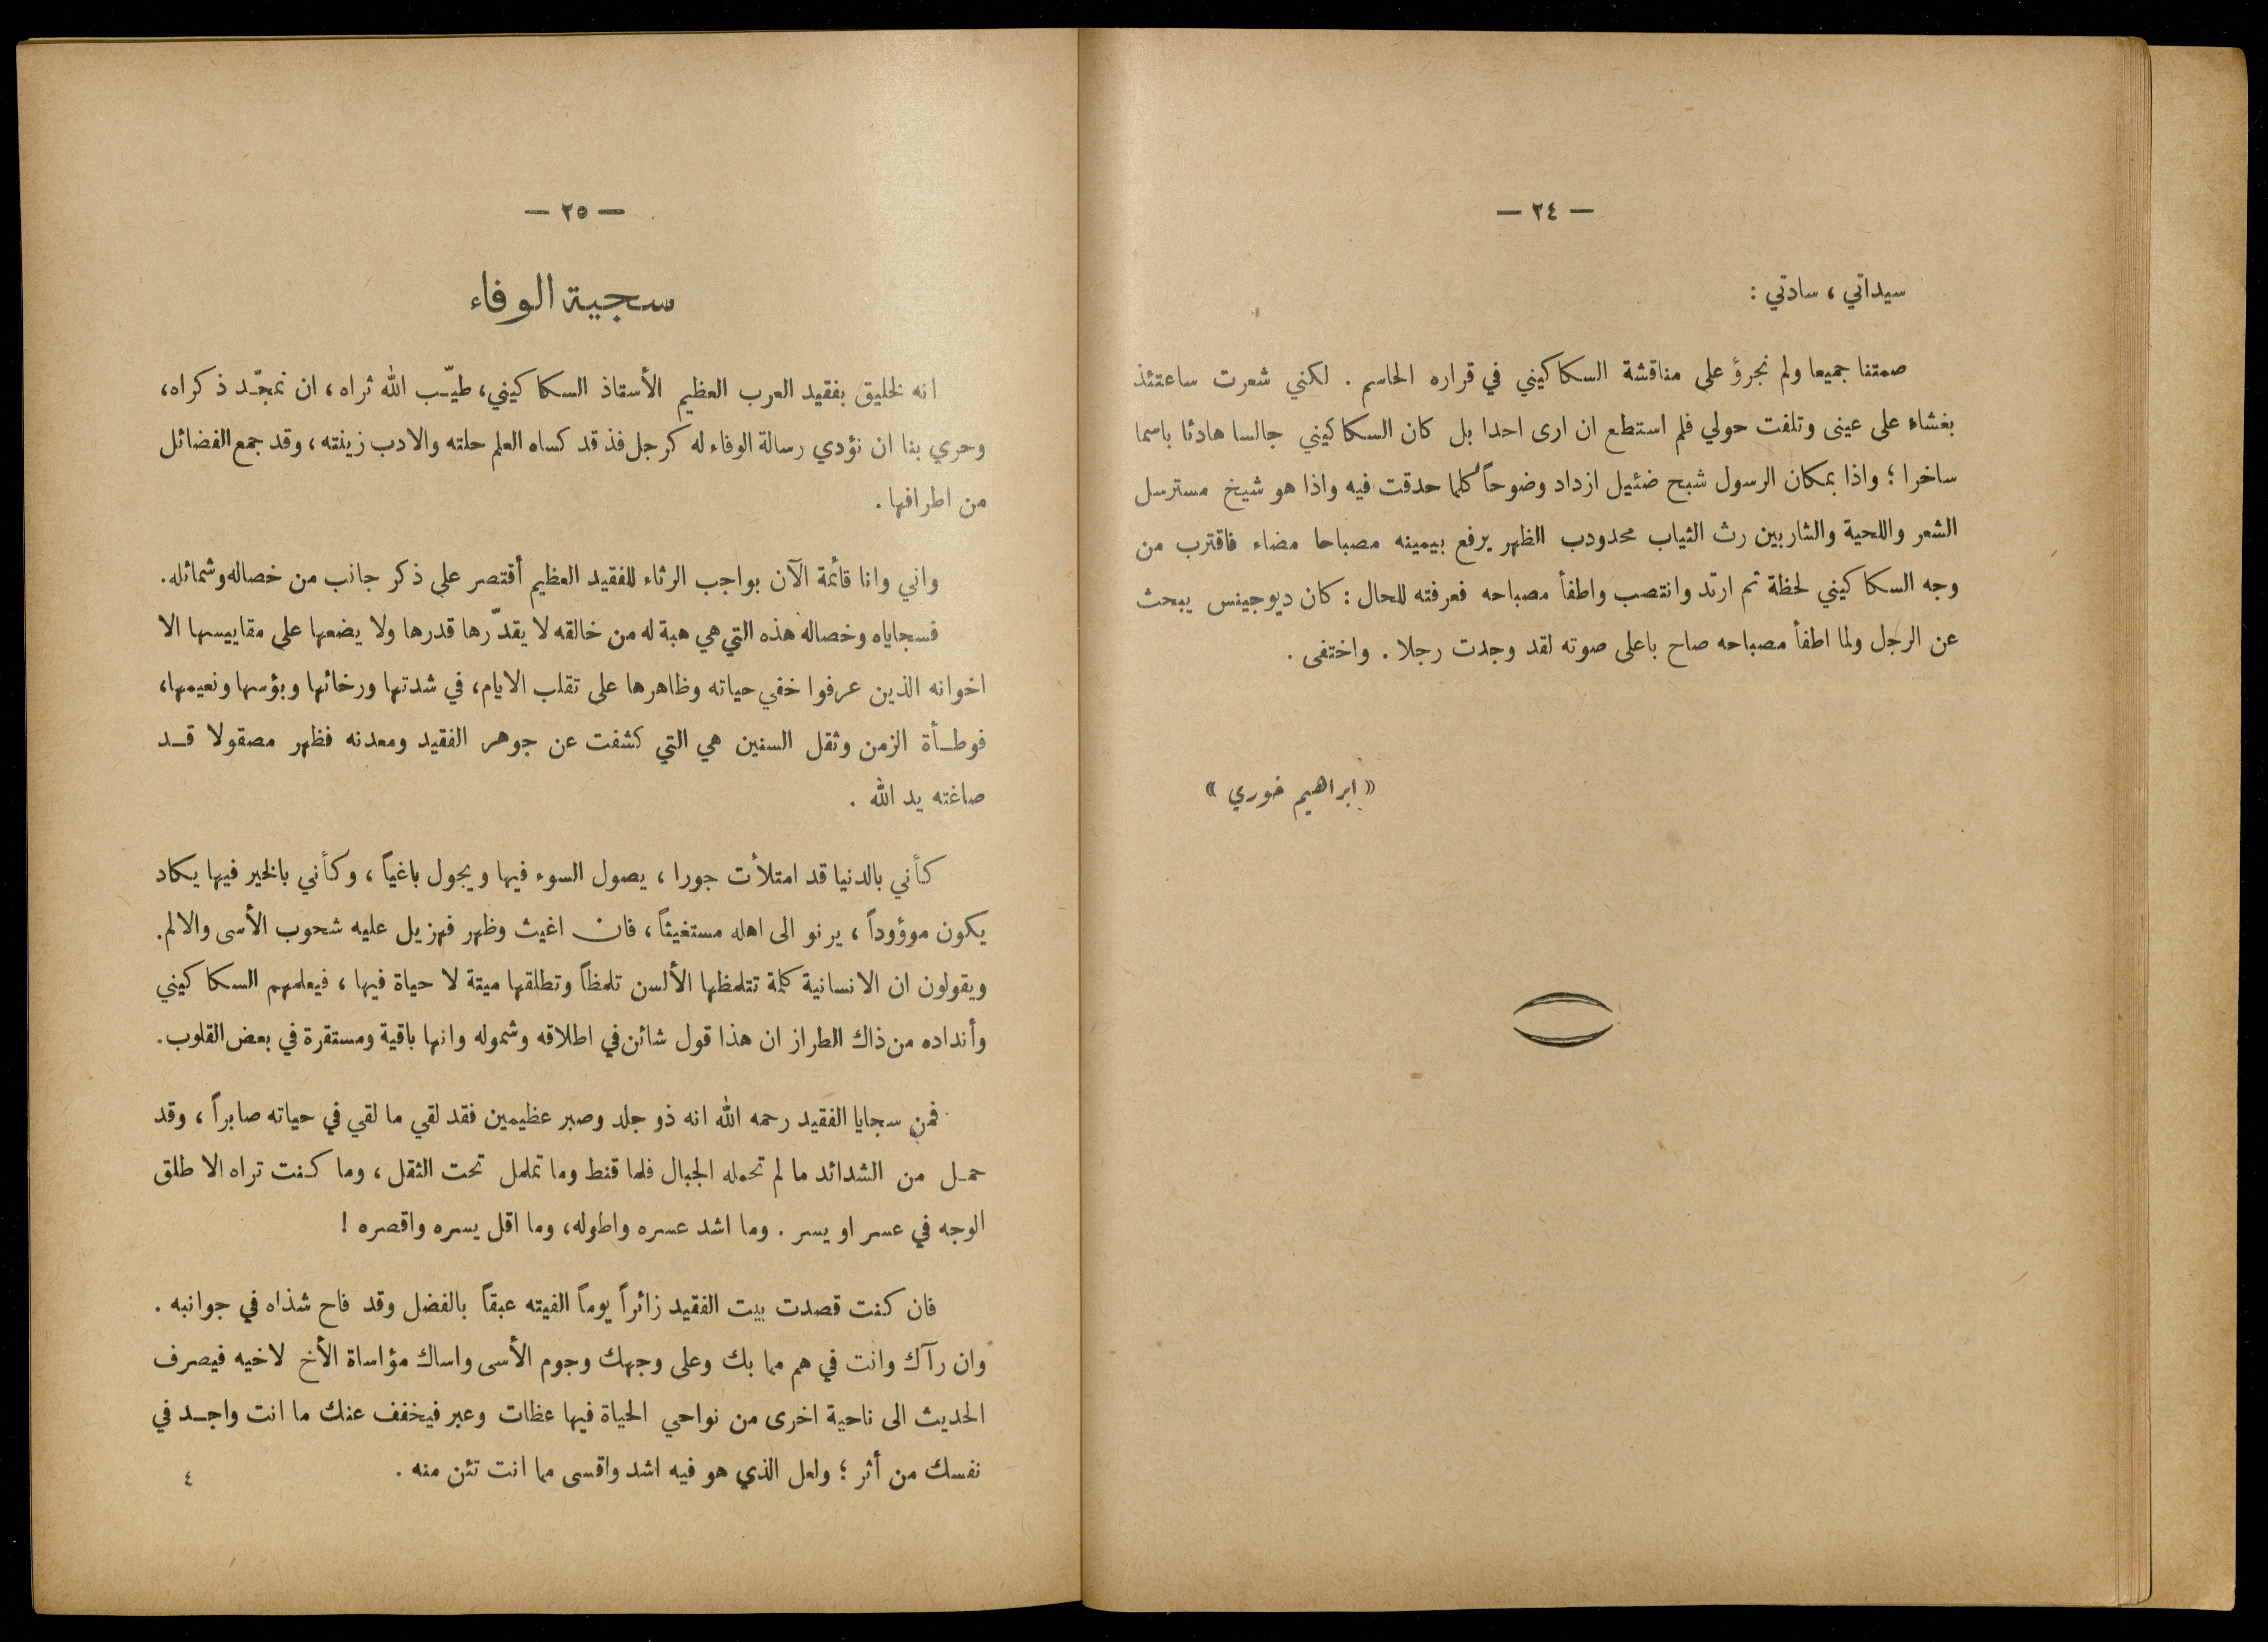 — ٢٤ —
سيداتي ، سادتي :
صمتنا جميعا ولم نجرؤ على مناقشة السكاكيني في قراره الحاسم . لكني شعرت ساعتئذ
بغشاء على عينى وتلفت حولي فلم استطع ان ارى احدا بل كان السكاكيني جالسا هادئا باسما
ساخرا ؛ واذا بمكان الرسول شبح ضئيل ازداد وضوحاً كلما حدقت فيه واذا هو شيخ مسترسل
الشعر واللحية والشاربين رث الثياب محدودب الظهر يرفع بيمينه مصباحا مضاء فاقترب من
وجه السكاكيني لحظة ثم ارتد وانتصب واطفأ مصباحه فعرفته للحال : كان ديوجينس يبحث
عن الرجل ولما اطفأ مصباحه صاح باعلى صوته لقد وجدت رجلا . واختفى .
« ابراهيم خوري »
— ٢٥ —
سجية الوفاء
انه لخليق بفقيد العرب العظيم الأستاذ السكاكيني، طيّب الله ثراه ، ان نمجّد ذكراه،
وحري بنا ان نؤدي رسالة الوفاء له كرجل فذ قد كساه العلم حلته والادب زينته ، وقد جمع الفضائل
من اطرافها .
واني وانا قائمة الآن بواجب الرثاء للفقيد العظيم أقتصر على ذكر جانب من خصاله وشمائله.
فسجاياه وخصاله هذه التي هي هبة له من خالقه لا يقدّرها قدرها ولا يضعها على مقاييسها الا
اخوانه الذين عرفوا خفي حياته وظاهرها على تقلب الايام، في شدتها ورخائها وبؤسها ونعيمها،
فوطأة الزمن وثقل السنين هي التي كشفت عن جوهر الفقيد ومعدنه فظهر مصقولا قد
صاغته يد الله .
كأني بالدنيا قد امتلأت جورا ، يصول السوء فيها ويجول باغياً ، وكأني بالخير فيها يكاد
يكون موؤوداً ، يرنو الى اهله مستغيثاً ، فان اغيث وظهر فهزيل عليه شحوب الأسى والالم.
ويقولون ان الانسانية كلمة تتلمظها الألسن تلمظاً وتطلقها ميتة لا حياة فيها ، فيعلمهم السكاكيني
وأنداده من ذاك الطراز ان هذا قول شائن في اطلاقه وشموله وانها باقية ومستقرة في بعض القلوب.
فمن سجايا الفقيد رحمه الله انه ذو جلد وصبر عظيمين فقد لقي ما لقي في حياته صابراً ، وقد
حمل من الشدائد ما لم تحمله الجبال فلما قنط وما تململ تحت الثقل ، وما كنت تراه الا طلق
الوجه في عسر او يسر . وما اشد عسره واطوله، وما اقل يسره واقصره !
فان كنت قصدت بيت الفقيد زائراً يوماً الفيته عبقاً بالفضل وقد فاح شذاه في جوانبه .
وان رآك وانت في هم مما بك وعلى وجهك وجوم الأسى واساك مؤاساة الأخ لاخيه فيصرف
الحديث الى ناحية اخرى من نواحي الحياة فيها عظات وعبر فيخفف عنك ما انت واجد في
نفسك من أثر ؛ ولعل الذي هو فيه اشد واقسى مما انت تئن منه .
٤